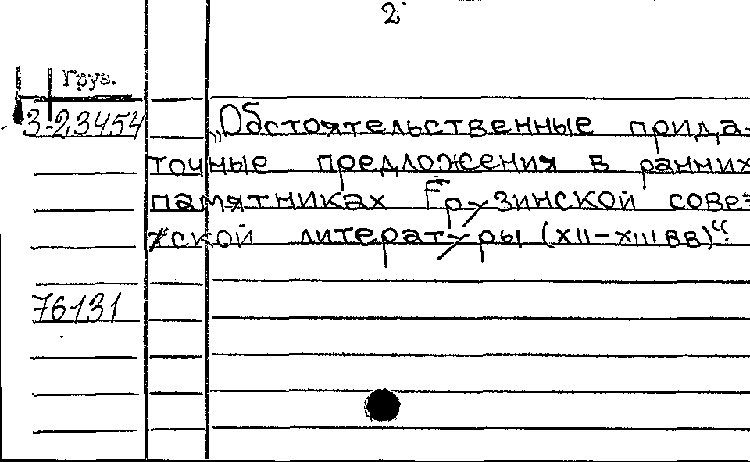 2
Груз.
3-23454
„Обстоятельственные прида-
точные предложения в ранних
памятниках Грузинской совет
жской литературы (XII-XIII вв)“.
76131